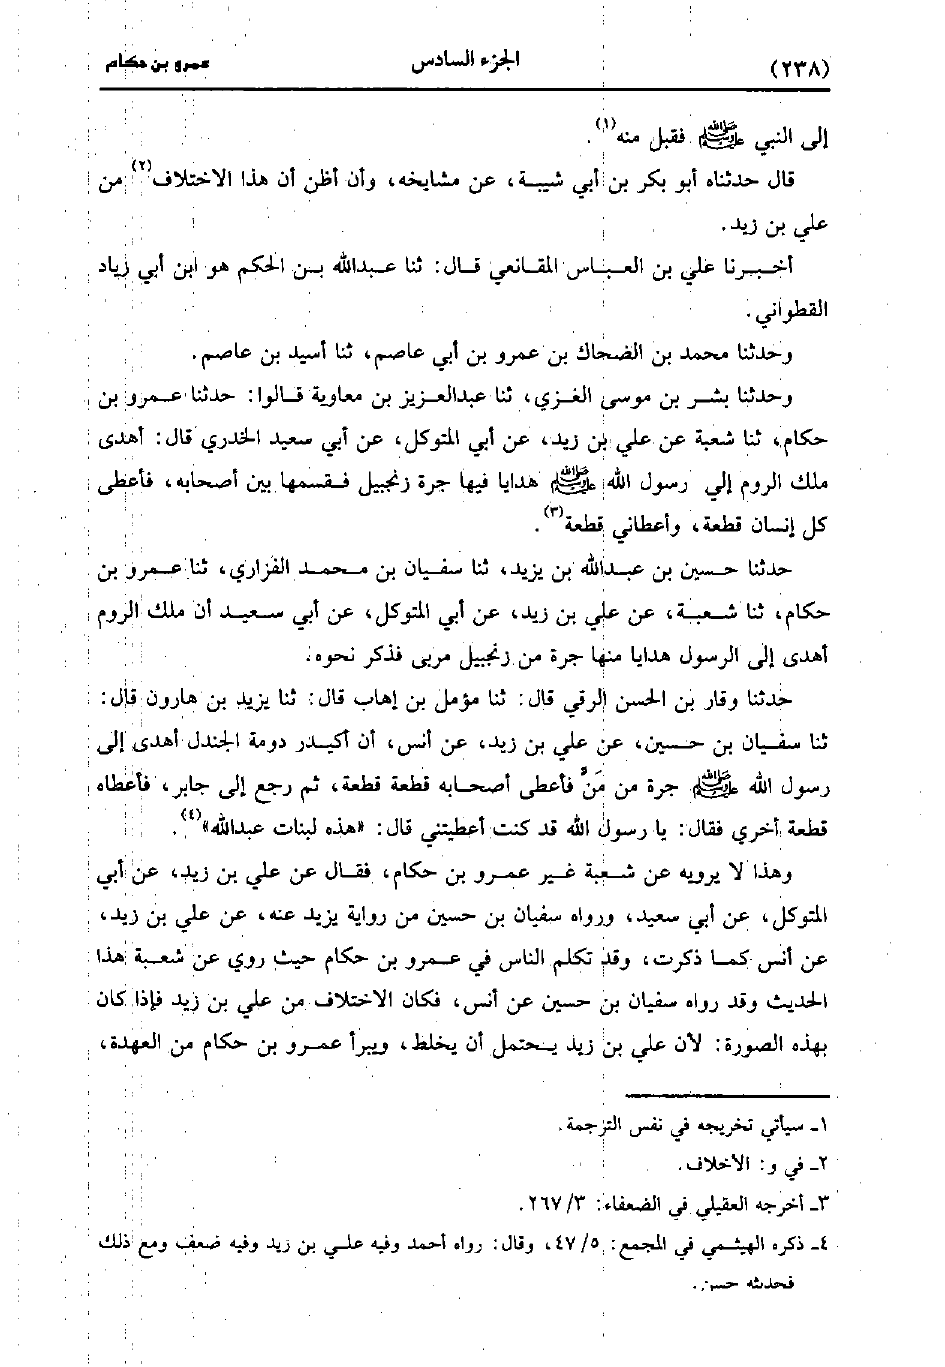 (٢٣٨) الجزء السادس عمرو بن حكام
إلى النبي ﷺ فقبل منه(١).
قال حدثناه أبو بكر بن أبي شيبة، عن مشايخه، وأن أظن أن هذا الاختلاف(٢) من
علي بن زيد.
أخـبـرنا علي بن العبـاس المقـانعي قـال: ثنا عـبدالله بـن الحكم هو ابن أبي زياد
القطواني.
وحدثنا محمد بن الضحاك بن عمرو بن أبي عاصم، ثنا أسيد بن عاصم.
وحدثنا بشـر بن موسى الغـزي، ثنا عبدالعـزيز بن معاوية قـالوا: حدثنا عـمرو بن
حكام، ثنا شعبة عن علي بن زيد، عن أبي المتوكل، عن أبي سعيد الخدري قال: أهدى
ملك الروم إلي رسول الله ﷺ هدايا فيها جرة زنجبيل فـقسمها بين أصحابه، فأعطى
كل إنسان قطعة، وأعطاني قطعة(٣).
حدثنا حـسين بن عبـدالله بن يزيد، ثنا سفـيان بن مـحمـد الفزاري، ثنا عـمرو بن
حكام، ثنا شـعبـة، عن علي بن زيد، عن أبي المتوكل، عن أبي سـعيـد أن ملك الروم
أهدى إلى الرسول هدايا منها جرة من زنجبيل مربى فذكر نحوه.
حدثنا وقار بن الحسن الرقي قال: ثنا مؤمل بن إهاب قال: ثنا يزيد بن هارون قال:
ثنا سفـيان بن حـسين، عن علي بن زيد، عن أنس، أن أكيـدر دومة الجندل أهدى إلى
رسول الله ﷺ جرة من مَنٍّ فأعطى أصحـابه قطعة قطعة، ثم رجع إلى جابر، فأعطاه
قطعة أخري فقال: يا رسول الله قد كنت أعطيتني قال: «هذه لبنات عبدالله»(٤).
وهذا لا يرويه عن شـعبة غـير عمـرو بن حكام، فقـال عن علي بن زيد، عن أبي
المتوكل، عن أبي سعيد، ورواه سفيان بن حسين من رواية يزيد عنه، عن علي بن زيد،
عن أنس كمـا ذكرت، وقد تكلم الناس في عـمرو بن حكام حيث روي عن شعبـة هذا
الحديث وقد رواه سفيان بن حسين عن أنس، فكان الاختلاف من علي بن زيد فإذا كان
بهذه الصورة: لأن علي بن زيد يـحتمل أن يخلط، ويبرأ عمـرو بن حكام من العهدة،
١ـ سيأتي تخريجه في نفس الترجمة.
٢ـ في و: الأخلاف.
٣ـ أخرجه العقيلي في الضعفاء: ٢٦٧/٣.
٤ـ ذكره الهيثـمي في المجمع: ٤٧/٥، وقال: رواه أحمد وفيه علـي بن زيد وفيه ضعف ومع ذلك
فحديثه حسن.